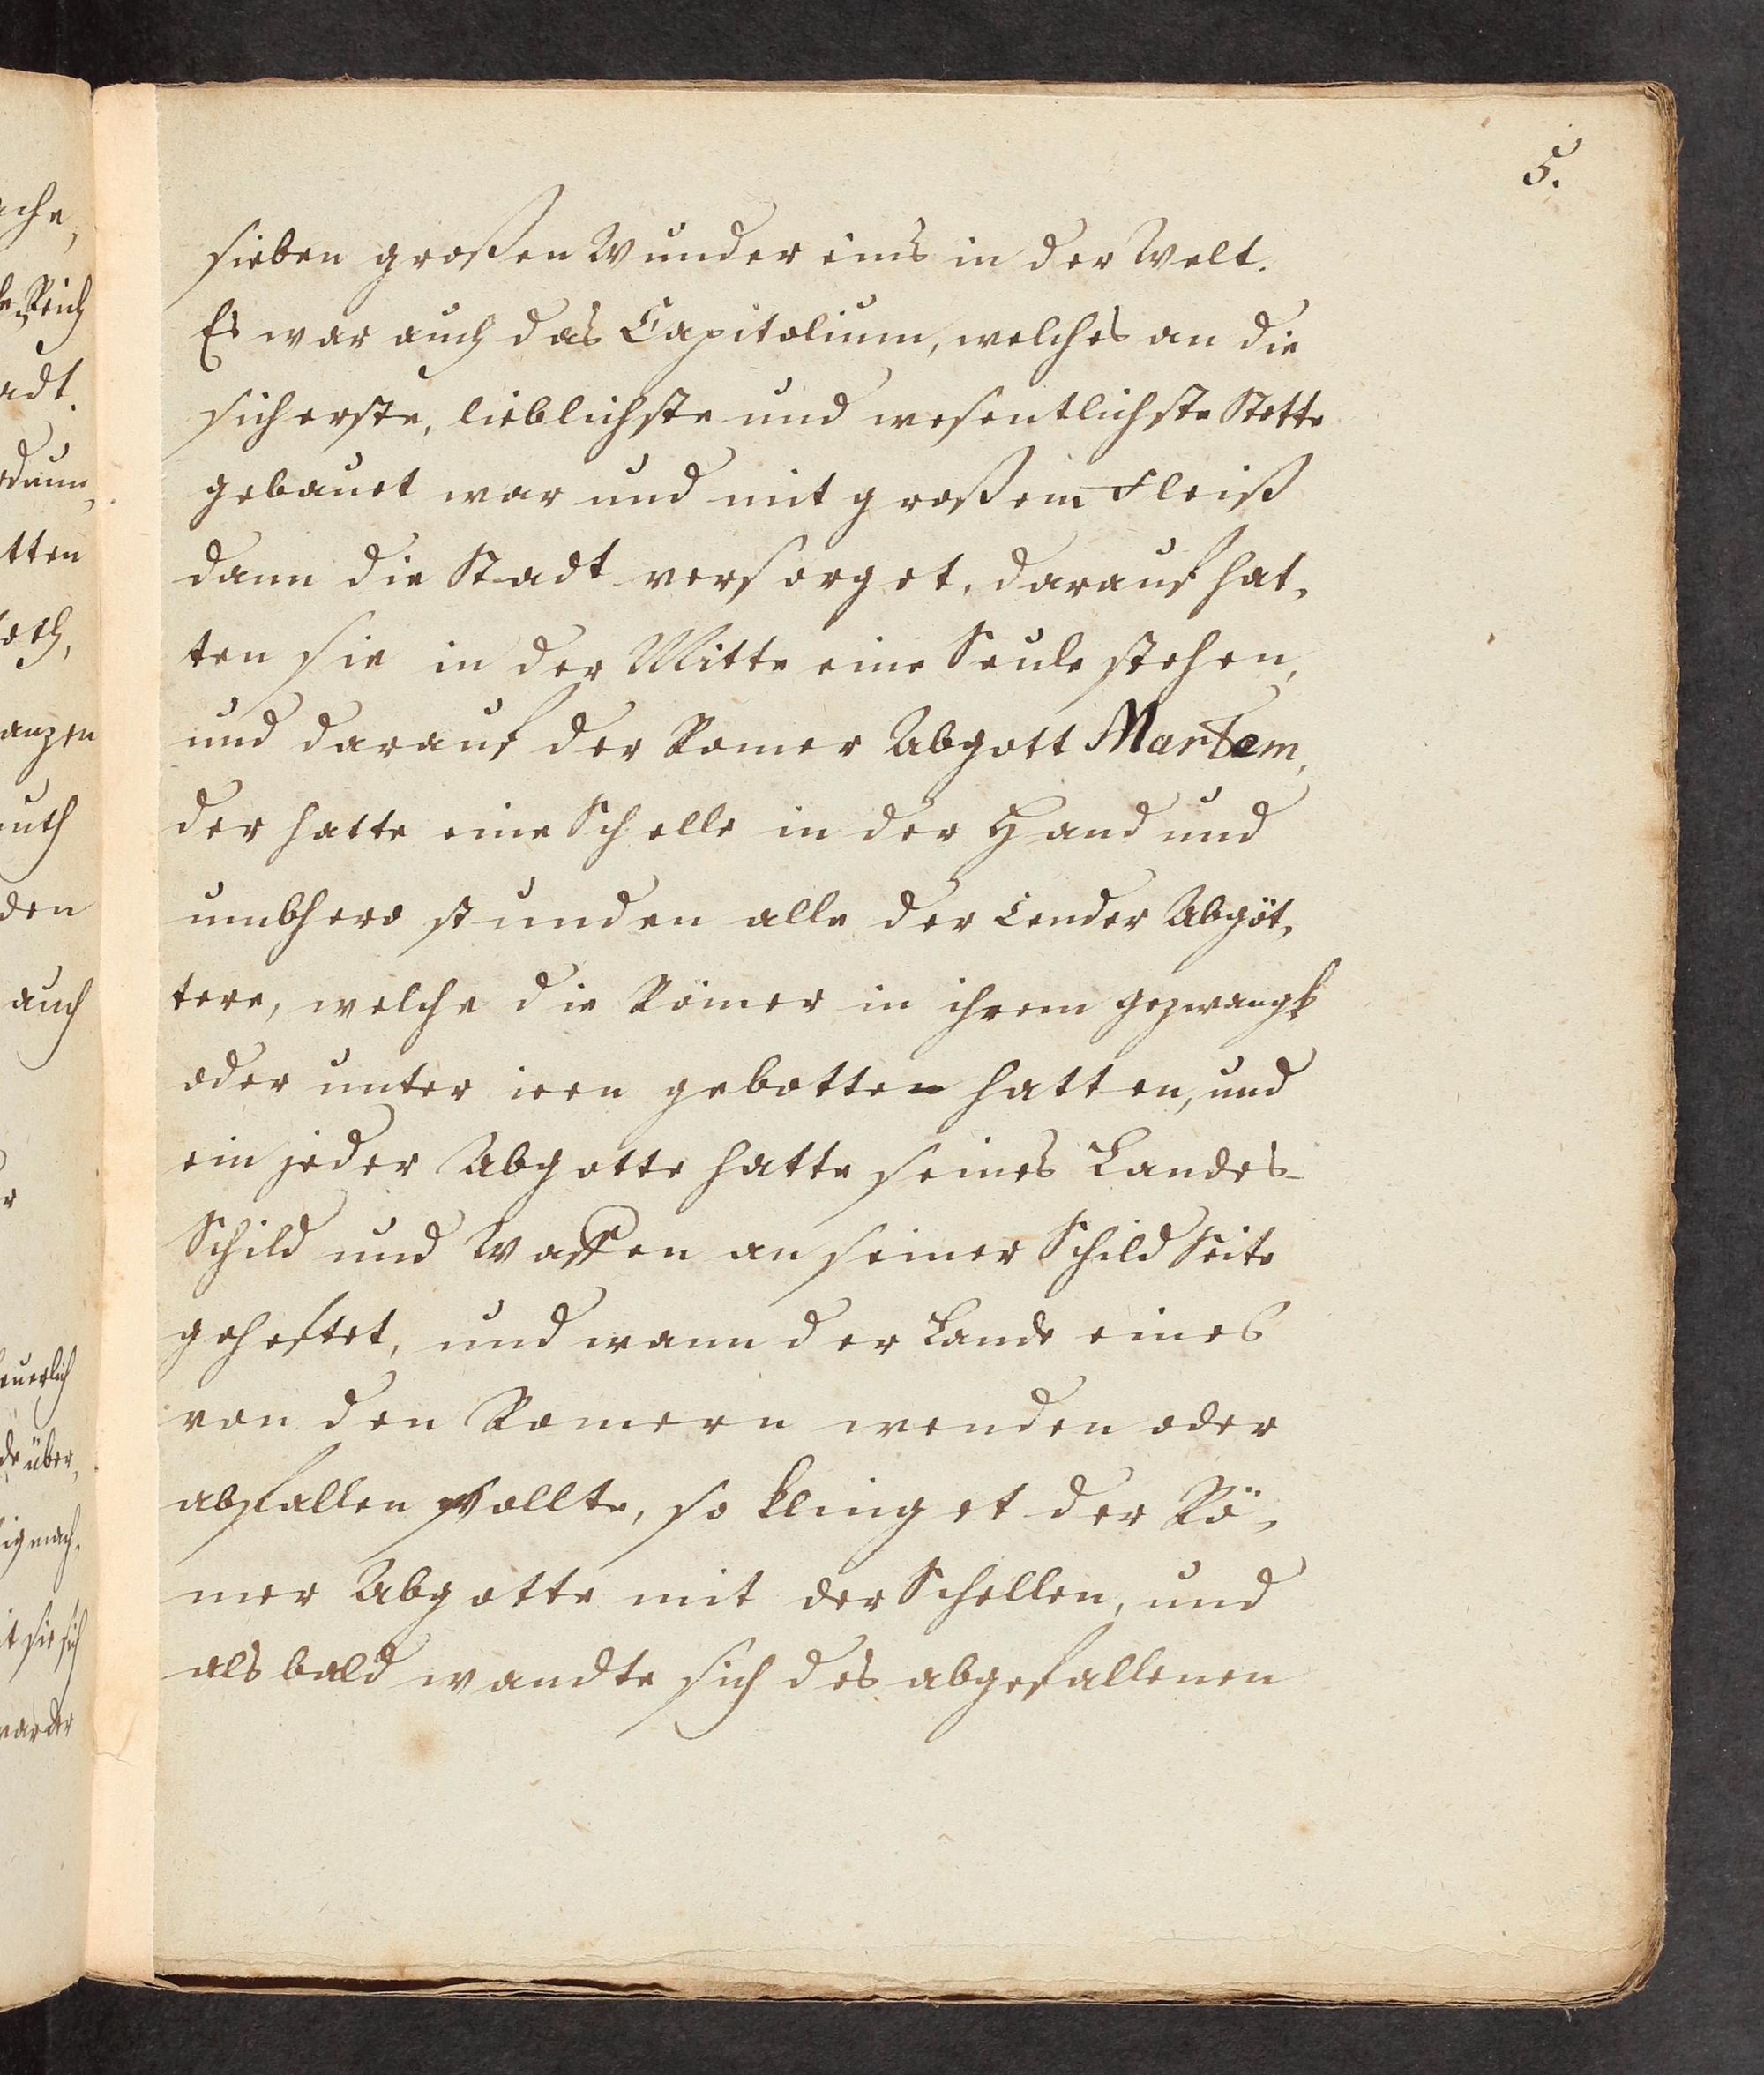 5.
sieben großen Wunder eins in der Welt.
Es war auch das Capitolium, welches an die
sicherste, lieblichste und wesentlichste Stette
gebauet war und mit großem Fleiß
dann die Stadt versorget, darauf hat-
ten sie in der Mitte eine Seule stehen,
und darauf der Romer Abgott Martem,
der hatte eine Schelle in der Hand und
umbhero stunden alle der Lender Abgöt-
tere, welche die Römer in ihrem gezwangk
oder unter iren gebotten hatten, und
ein jeder Abgotte hatte seines Landes-
Schild und Waffen an seiner Schild Seite
geheftet, und wann der Lande eines
von den Romern wenden oder
abfallen wollte, so klinget der Rö-
mer Abgotte mit der Schellen, und
als bald wandte sich des abgefallenen